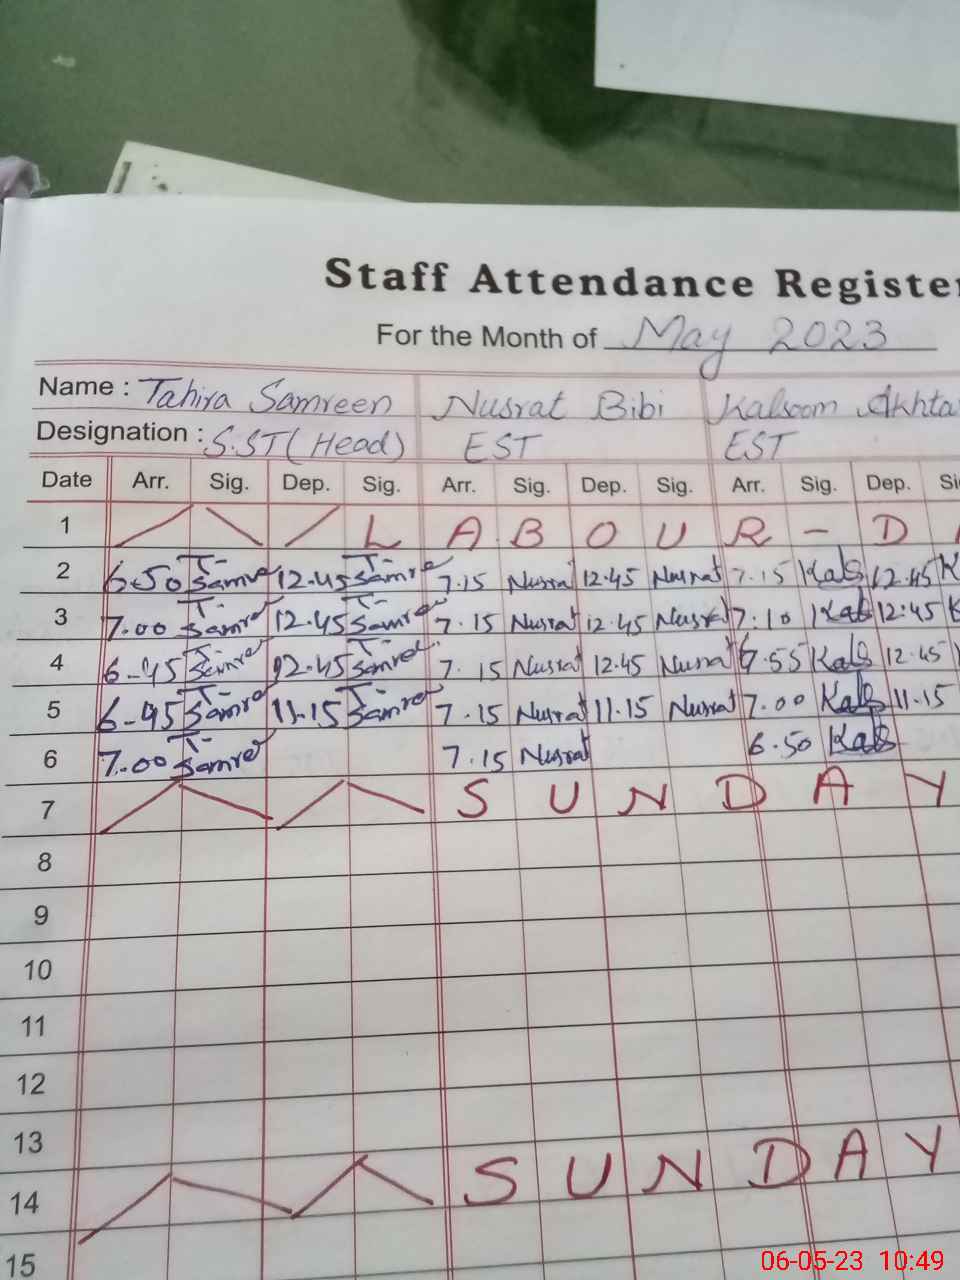 Staff Attendance Register
For the Month of May 2023
Name : Tahira Samreen Nusrat Bibi Kalsoom Akhta
Designation : S.ST (Head) EST EST
Date Arr. Sig. Dep. Sig. Arr. Sig. Dep. Sig. Arr. Sig. Dep. Si
1 L A B O U R - D
2 6.50 T- Samre 12.45 T- Samre 7.15 Nusrat 12.45 Nusrat 7.15 Kals 12.45 K
3 7.00 T- Samre 12.45 T- Samre 7.15 Nusrat 12.45 Nusrat 7.10 Kals 12.45 K
4 6-45 T- Samre 12.45 T- Samre 7.15 Nusrat 12.45 Nusrat 6.55 Kals 12.45
5 6-45 T- Samre 11.15 T- Samre 7.15 Nusrat 11.15 Nusrat 7.00 Kals 11.15
6 7.00 T- Samre 7.15 Nusrat 6.50 Kals
7 S U N D A Y
8
9
10
11
12
13
14 S U N D A Y
15
06-05-23 10:49